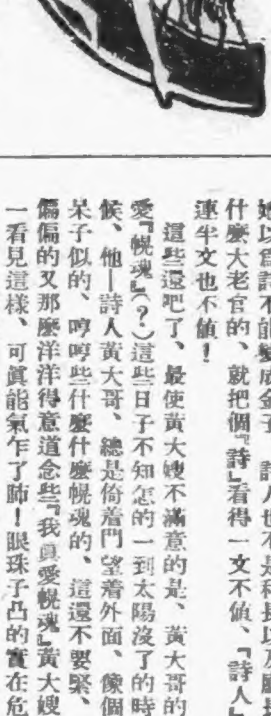 她以爲詩不能變成金子、詩人也不是科長以及廳長
什麼大老官的、就把個『詩』看得一文不值、『詩人』
連半文也不值！
這些還吧了、最使黃大嫂不滿意的是、黃大哥的
愛『幌魂』(？)這些日子不知怎的一到太陽沒了的時
候、他—詩人黃大哥、總是倚着門望着外面、像個
呆子似的、哼哼些什麼什麼幌魂的、這還不要緊、
偏偏的又那麼洋洋得意道念些『我眞愛幌魂』黃大嫂
一看見這樣、可眞能氣乍了肺！眼珠子凸的實在危